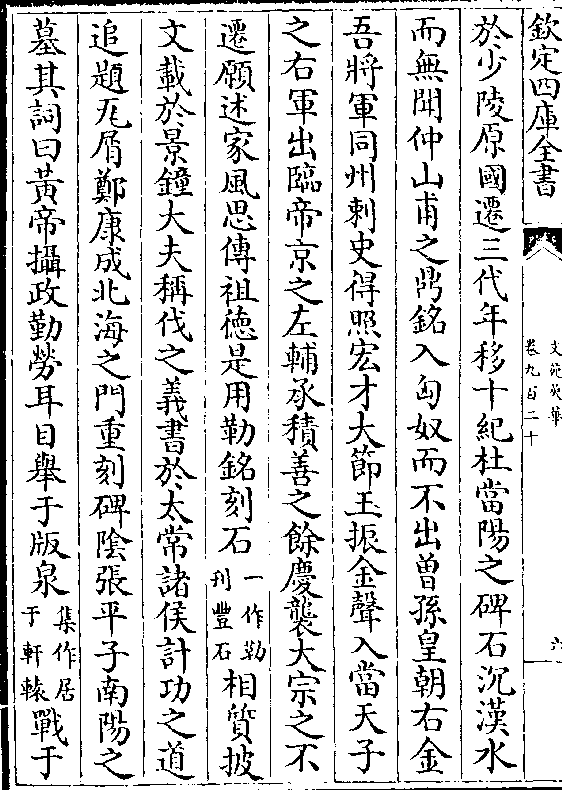 欽定四庫全書
文苑英華
卷九百二十
六
於少陵原國遷三代年移十紀杜當陽之碑石沉漢水
而無聞仲山甫之鼎銘入匈奴而不出曾孫皇朝右金
吾將軍同州刺史得照宏才大節玉振金聲入當天子
之右軍出臨帝京之左輔承積善之餘慶襲大宗之不
遷願述家風思傳祖德是用勒銘刻石一作勒刋豐石相質披
文載於景鐘大夫稱伐之義書於太常諸侯計功之道
追題兎屑鄭康成北海之門重刻碑陰張平子南陽之
墓其詞曰黃帝攝政勤勞耳目舉于版泉集作居于軒轅戰于